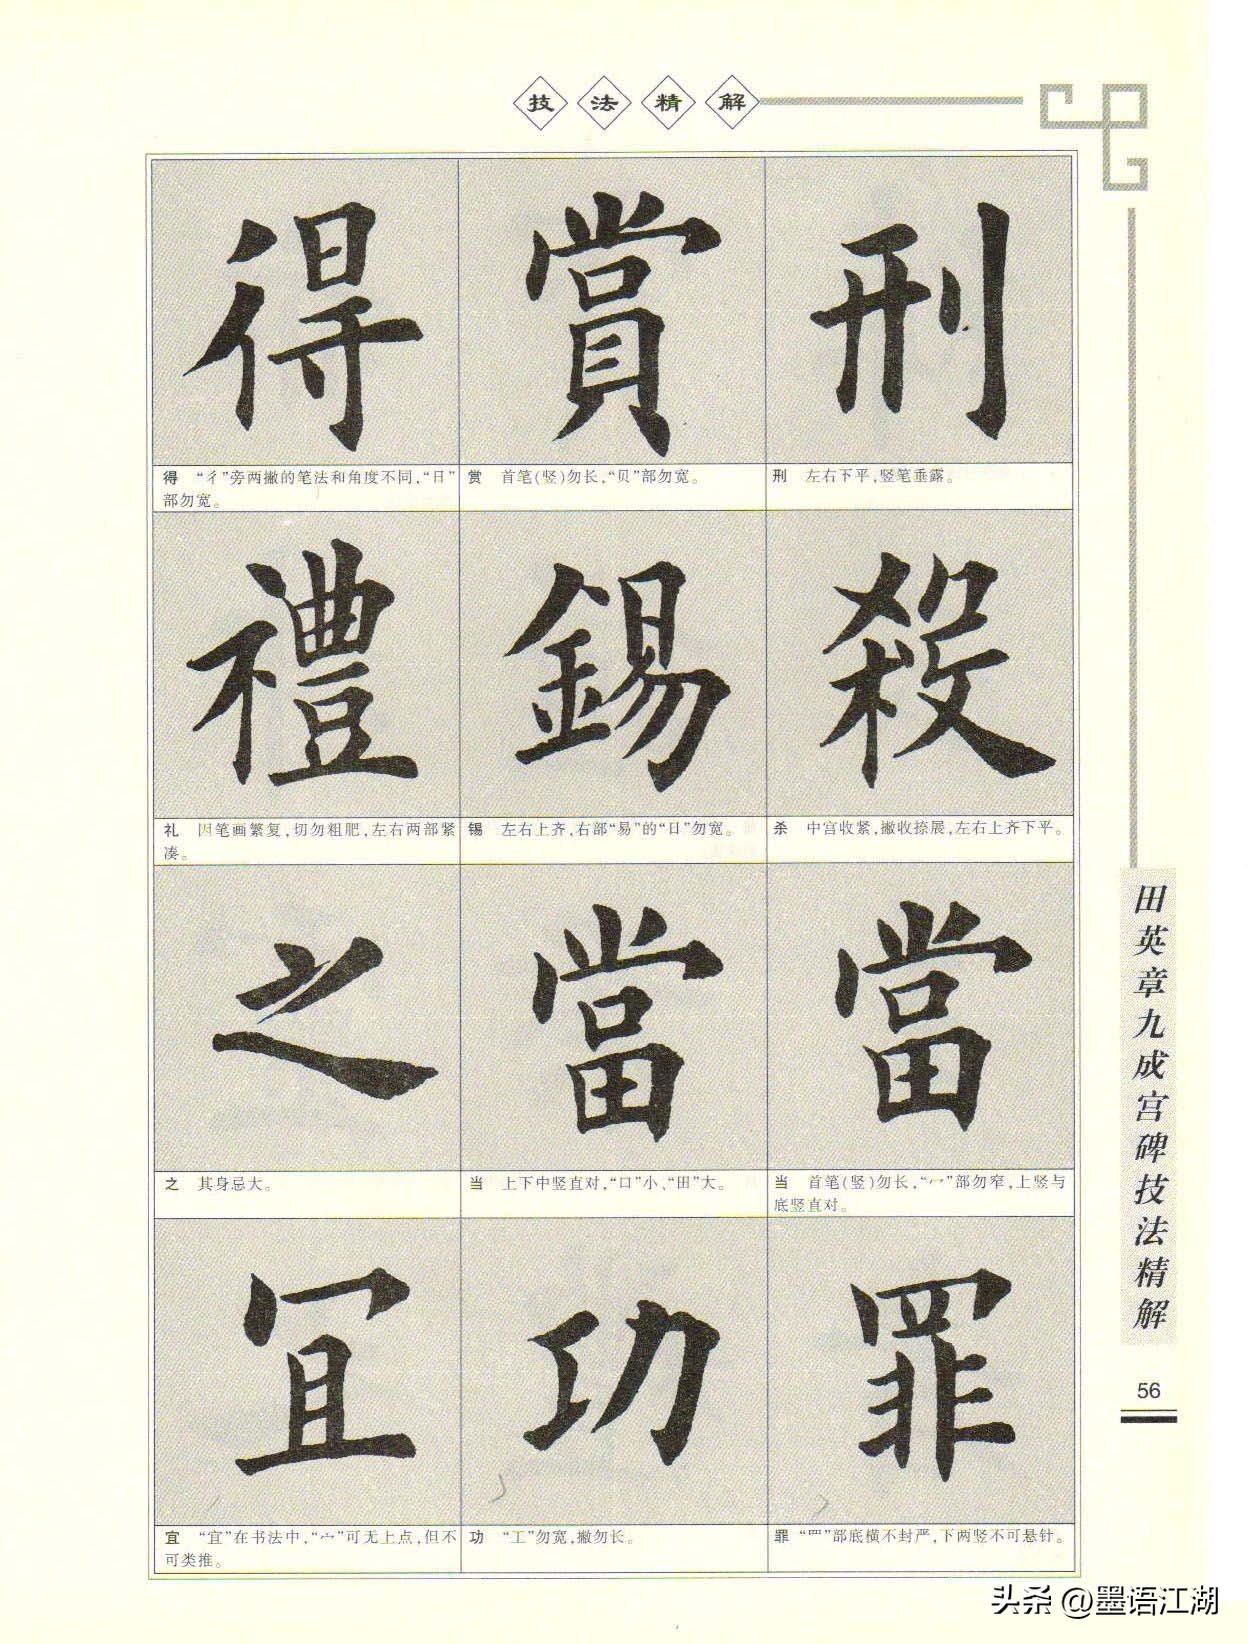 技法精解
得 賞 刑
得 “彳”旁两撇的笔法和角度不同，“日”
部勿宽。
赏 首笔(竖)勿长，“贝”部勿宽。
刑 左右下平，竖笔垂露。
禮 錫 殺
礼 因笔画繁复，切勿粗肥，左右两部紧
凑。
锡 左右上齐，右部“易”的“日”勿宽。
杀 中宫收紧，撇收捺展，左右上齐下平。
之 當 當
之 其身忌大。
当 上下中竖直对，“口”小、“田”大。
当 首笔(竖)勿长，“冖”部勿窄，上竖与
底竖直对。
冝 功 罪
宜 “宜”在书法中，“宀”可无上点，但不
可类推。
功 “工”勿宽，撇勿长。
罪 “罒”部底横不封严，下两竖不可悬针。
田英章九成宫碑技法精解
56
头条 @墨语江湖